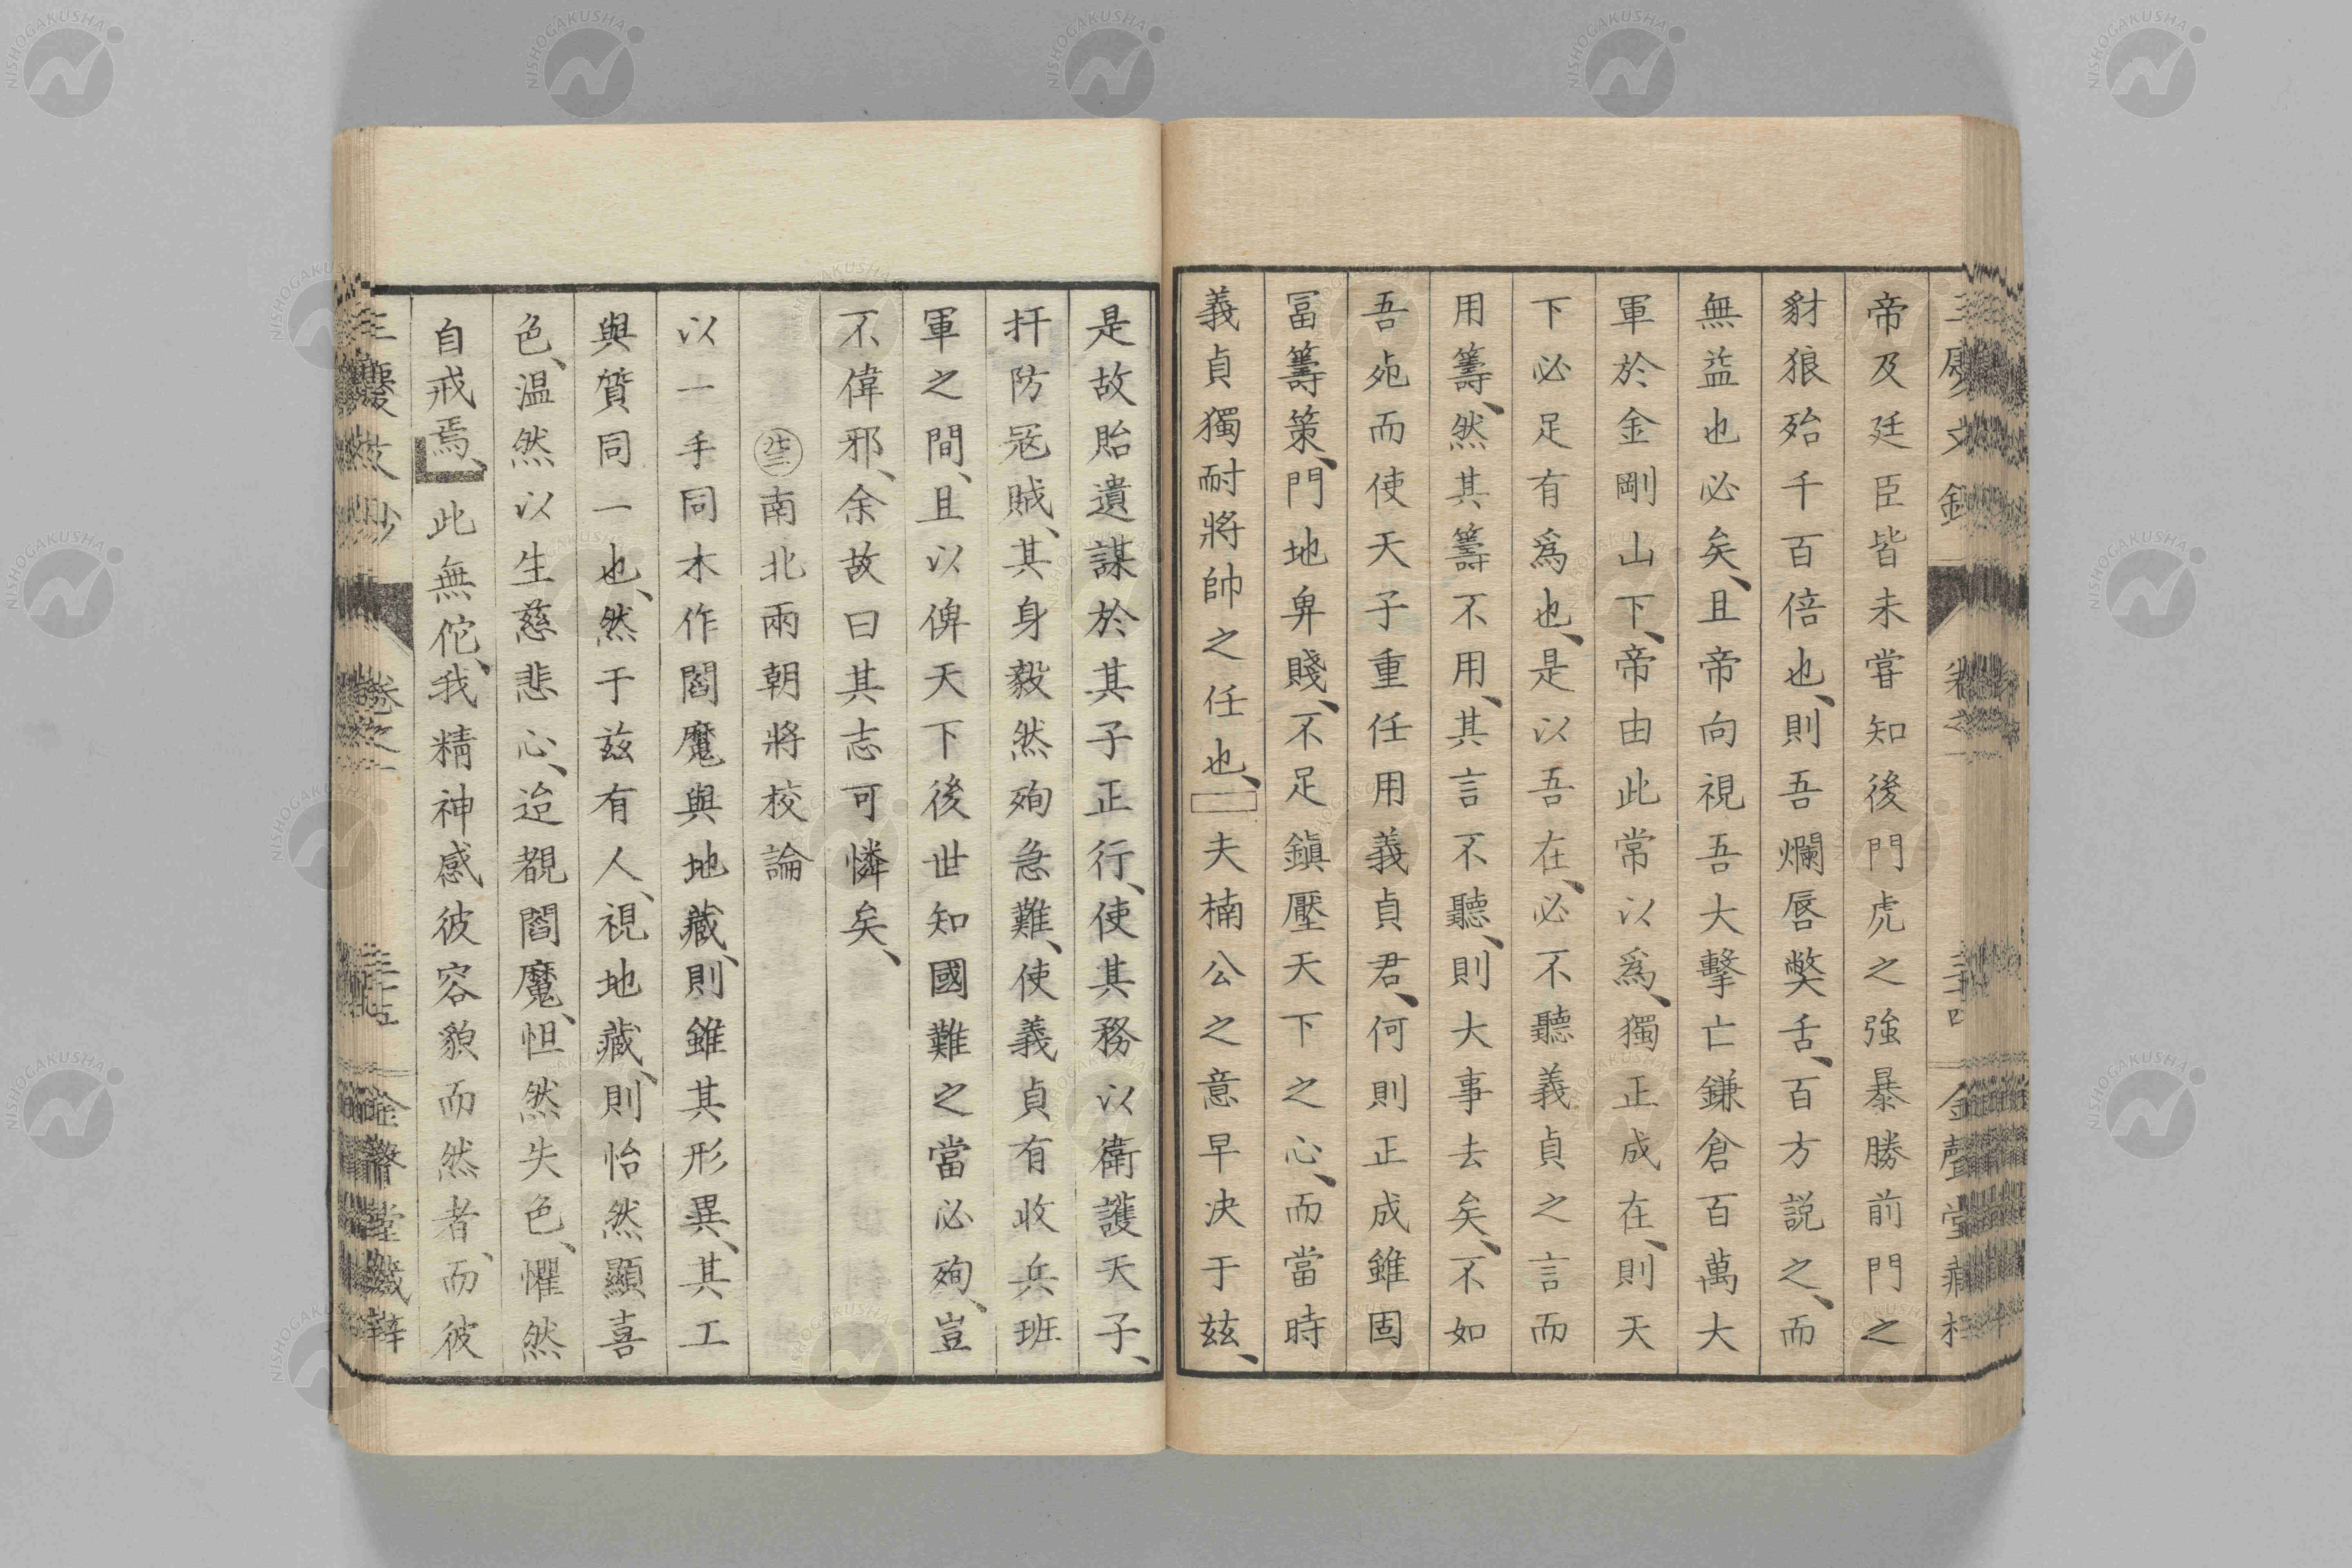 帝及廷臣皆未甞知後門虎之強暴勝前門之
豺狼殆千百倍也、則吾爛唇獘舌、百方説之、而
無益也必矣、且帝向視吾大擊亡鎌倉百萬大
軍於金剛山下、帝由此常以爲、獨正成在、則天
下必足有爲也、是以吾在、必不聽義貞之言而
用籌、然其籌不用、其言不聽、則大事去矣、不如
吾死而使天子重任用義貞君、何則正成雖固
冨籌策、門地卑賤、不足鎭壓天下之心、而當時
義貞獨耐將帥之任也、夫楠公之意早决于兹、
是故貽遺謀於其子正行、使其務以衛護天子、
扞防冦賊、其身毅然殉急難、使義貞有收兵班
軍之間、且以俾天下後世知國難之當必殉、豈
不偉邪、余故曰其志可憐矣、
南北兩朝將校論
以一手同木作閻魔與地藏、則雖其形異、其工
與質同一也、然于兹有人、視地藏、則怡然顯喜
色、温然以生慈悲心、迨覩閻魔、怛然失色、懼然
自戒焉、此無佗、我精神感彼容貌而然者、而彼